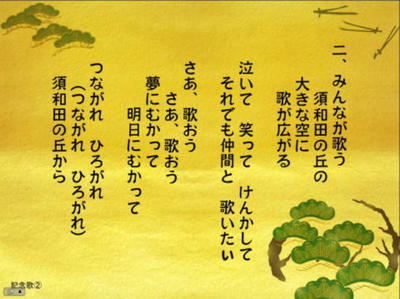 二、みんなが歌う
須和田の丘の
大きな空に
歌が広がる
泣いて 笑って けんかして
それでも仲間と 歌いたい
さあ、歌おう
さあ、歌おう
夢にむかって
明日にむかって
つながれ ひろがれ
(つながれ ひろがれ)
須和田の丘から
記念歌②